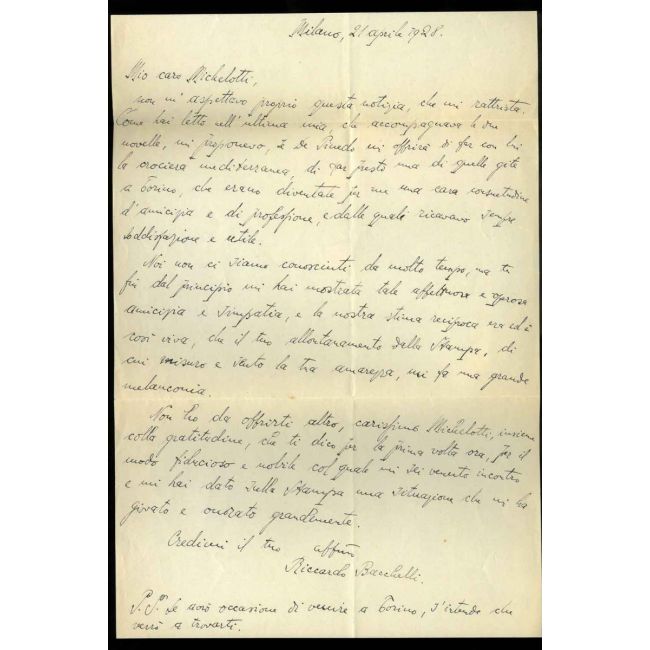 Milano, 21 aprile 1928.
Mio caro Michelotti,
non m'aspettavo proprio questa notizia, che mi rattrista.
Come hai letto nell'ultima mia, che accompagnava le due
novelle, mi proponevo, se De Pinedo mi offrirà di far con lui
la crociera mediterranea, di far presto una di quelle gite
a Torino, che erano diventate per me una cara consuetudine
d'amicizia e di professione, e dalle quali ricavavo sempre
soddisfazione e utile.
Noi non ci siamo conosciuti da molto tempo, ma tu
fin dal principio mi hai mostrata tale affettuosa e operosa
amicizia e simpatia, e la nostra stima reciproca era ed è
così viva, che il tuo allontanamento dalla Stampa, di
cui misuro e sento la tua amarezza, mi fa una grande
melanconia.
Non ho da offrirti altro, carissimo Michelotti, insieme
colla gratitudine, che ti dico per la prima volta ora, per il
modo fiducioso e nobile col quale mi sei venuto incontro
e mi hai dato sulla Stampa una situazione che mi ha
giovato e onorato grandemente.
Credimi il tuo affmo
Riccardo Bacchelli.
P.S. Se avrò occasione di venire a Torino, s'intende che
verrò a trovarti.